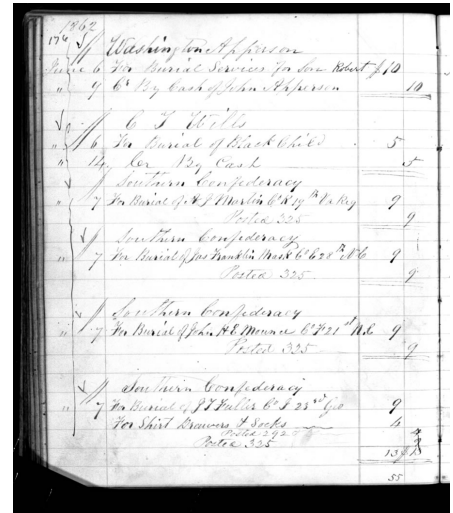 1862
176 Washington Apperson
June 6 For Burial Services for Son Robert $10
" 7 Cr By Cash of John Apperson 10
C T Wills
" 6 For Burial of Black Child 5
" 14 Cr By Cash 5
Southern Confederacy
" 7 For Burial of A J Martin Co K 19th Va Reg 9
Posted 325 9
Southern Confederacy
" 7 For Burial of Jas Franklin Co C 28th N C 9
Posted 325 9
Southern Confederacy
" 7 For Burial of John H E Co F 21st N.C 9
Posted 325 9
Southern Confederacy
" 7 For Burial of J T Fuller Co I 23rd Geo 9
For Shirt Drawers & Socks 4
Posted 292
Posted 325
13
55